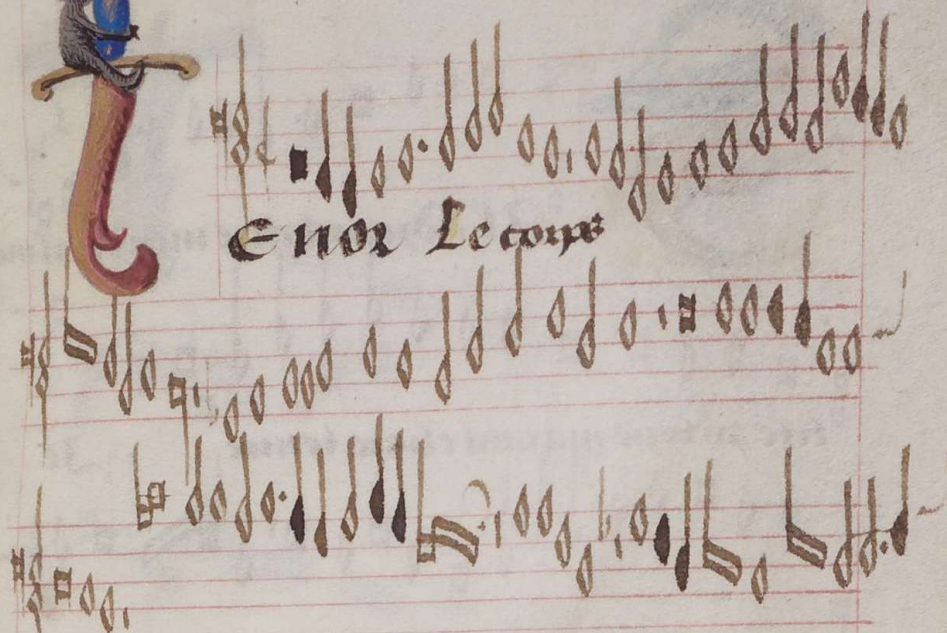 Tenor Le corps